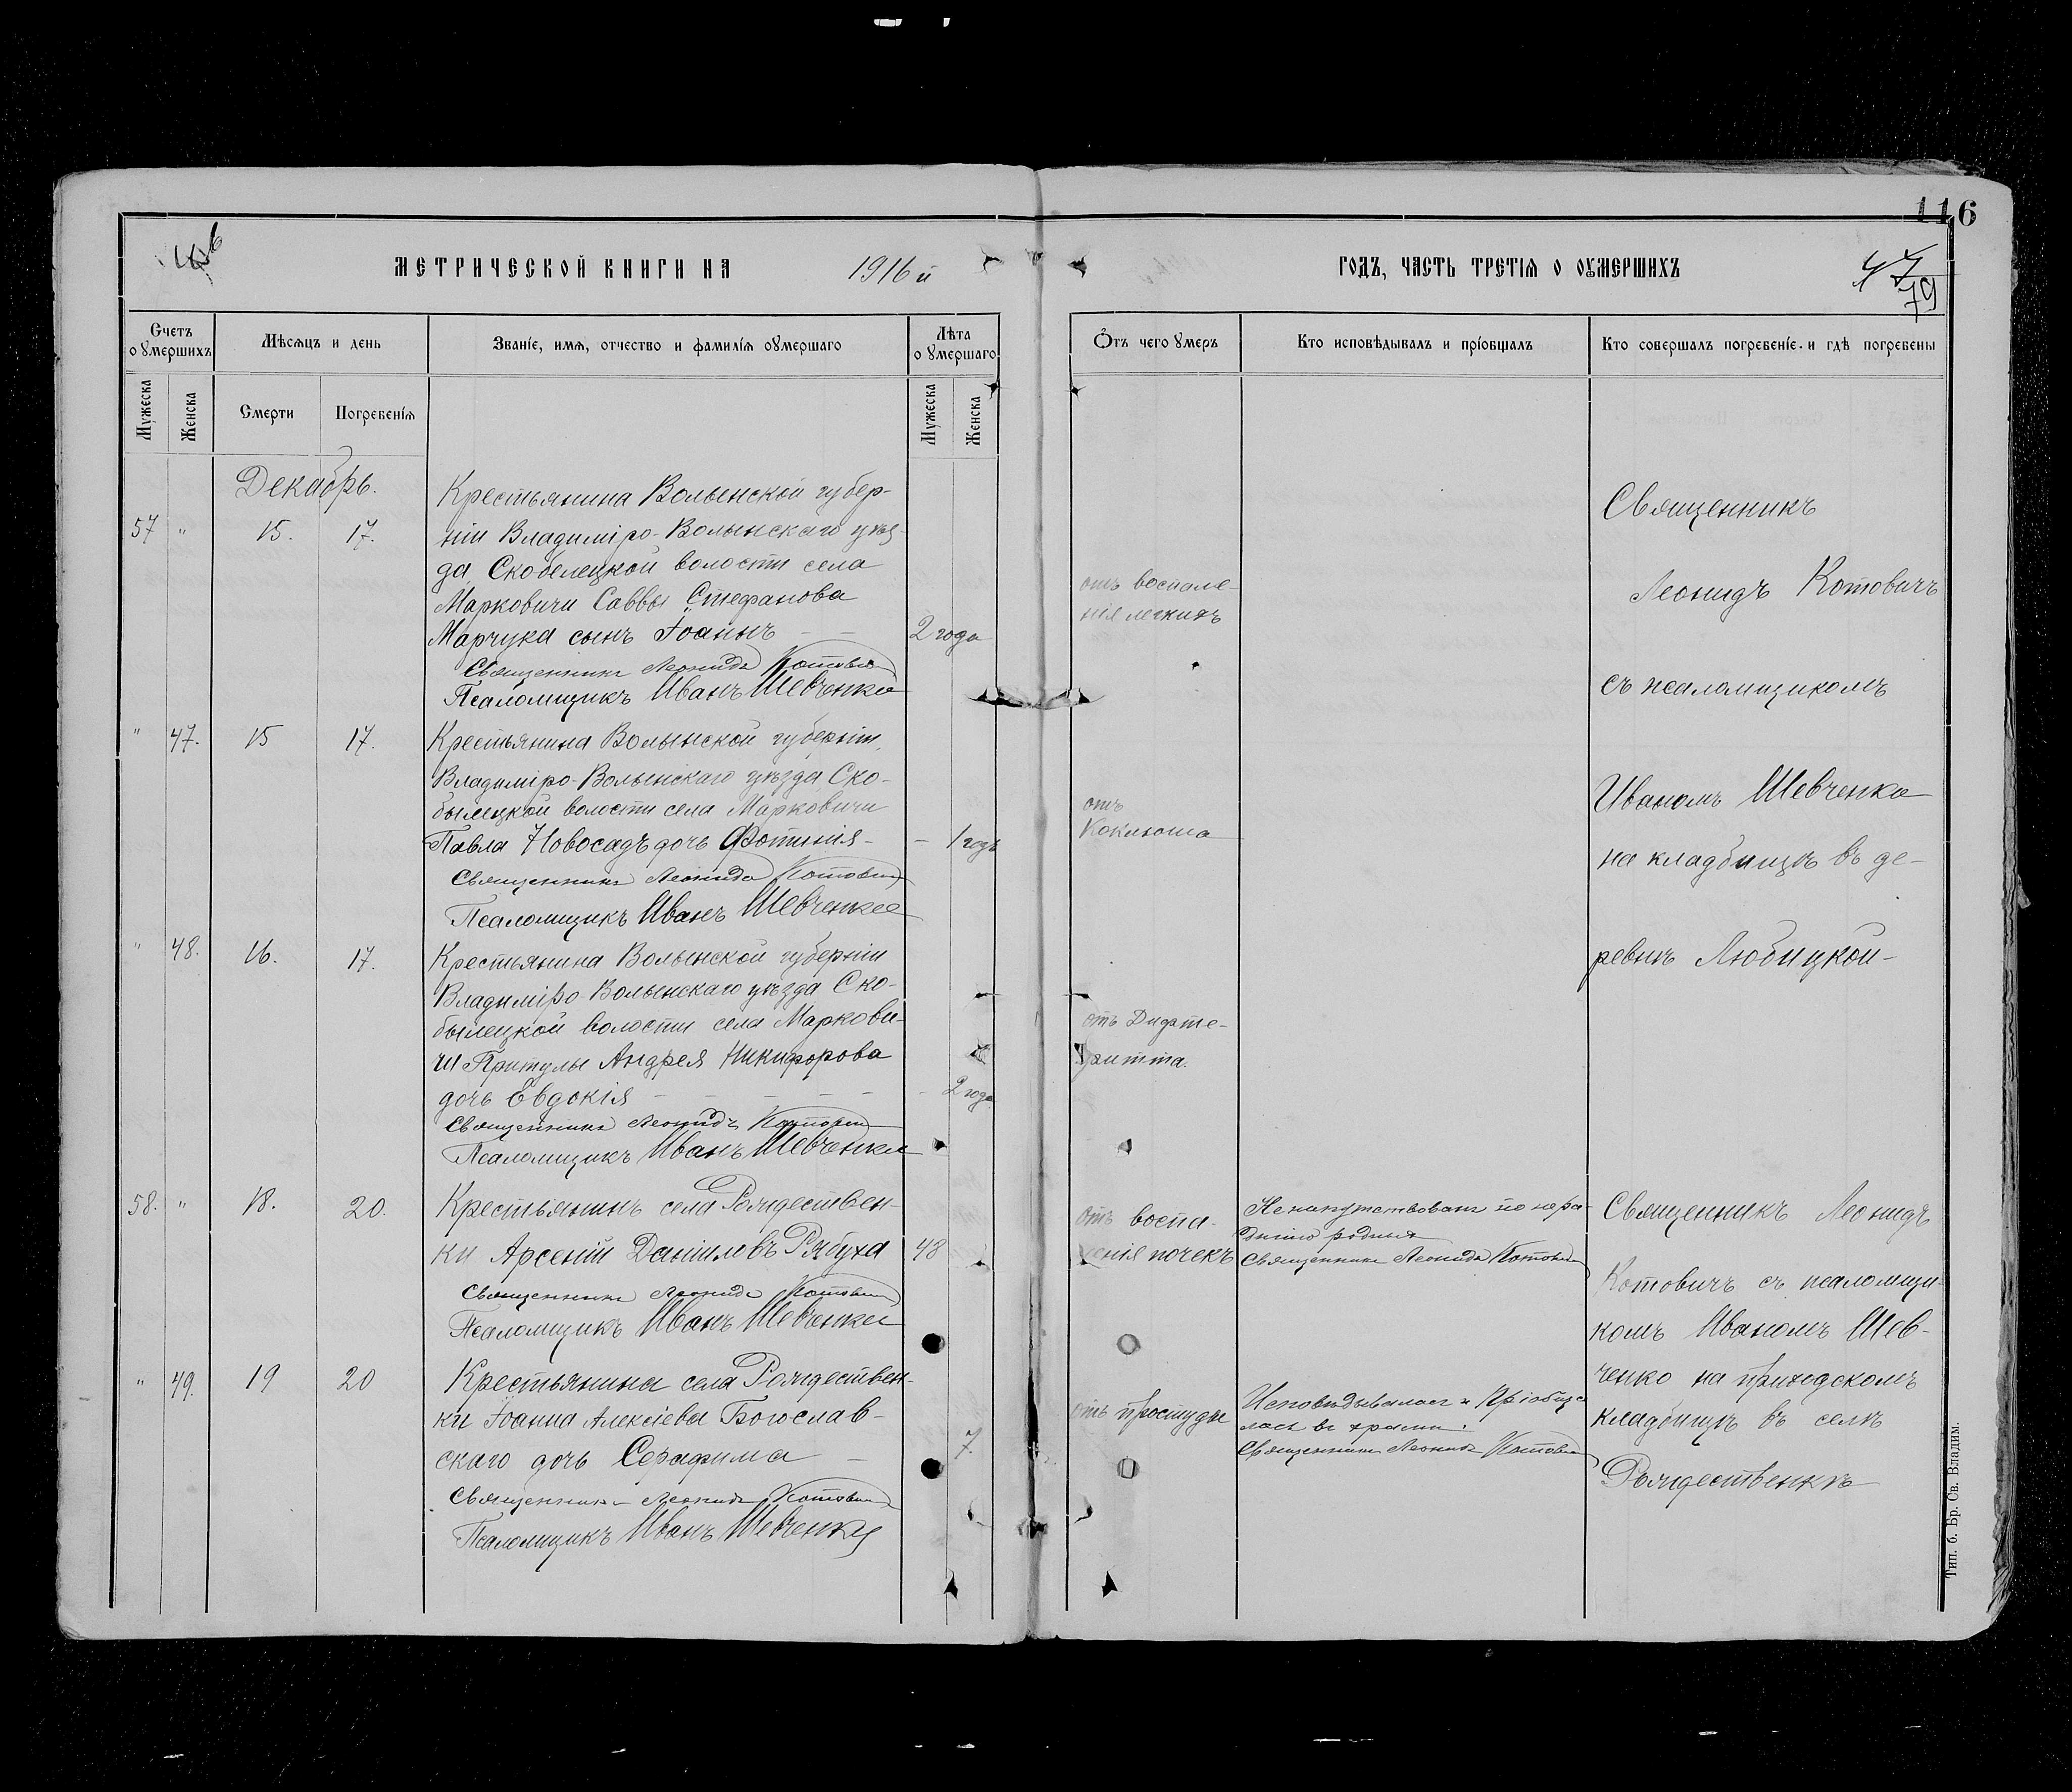 116
МЕТРИЧЕСКОЙ КНИГИ НА 1916 й
ГОДЪ, ЧАСТЬ ТРЕТІЯ О ОУМЕРШИХЪ
47
79
Счетъ оумершихъ
Мѣсяцъ и день
Званіе, имя, отчество и фамилія оумершаго
Лѣта оумершаго
Отъ чего умеръ
Кто исповѣдывалъ и пріобщалъ
Кто совершалъ погребеніе и гдѣ погребены
Мужеска
Женска
Смерти
Погребенія
Мужеска
Женска
Декабрь.
57 " 15. 17.
Крестьянина Волынской губер-
ніи Владиміро-Волынскаго уѣз-
да, Скобелецкой волости села
Марковичи Саввы Стефанова
Марчука сынъ Іоаннъ — —
2 года
Священникъ Леонидъ Котовичъ
Псаломщикъ Иванъ Шевченко
отъ воспале-
нія легкихъ
Священникъ
Леонидъ Котовичъ
съ псаломщикомъ
Иваномъ Шевченко
на кладбищѣ въ де-
ревнѣ Любицкой-
" 47. 15 17.
Крестьянина Волынской губерніи,
Владиміро-Волынскаго уѣзда Ско-
былецкой волости села Марковичи
Павла Новосадъ дочь Фотинія -
- 1 годъ
Священникъ Леонидъ Котовичъ
Псаломщикъ Иванъ Шевченко
отъ
Коклюша
" 48. 16. 17.
Крестьянина Волынской губерніи
Владиміро Волынскаго уѣзда Ско-
былецкой волости села Маркови-
чи Притулы Андрея Никифорова
дочь Евдокія — — — — —
- 2 года
Священникъ Леонидъ Котовичъ
Псаломщикъ Иванъ Шевченко
отъ Дифте-
рита.
58. " 18. 20.
Крестьянинъ села Рождествен-
ки Арсеній Даніиловъ Рябуха
48
Священникъ Леонидъ Котовичъ
Псаломщикъ Иванъ Шевченко
отъ воспа-
ленія почекъ
Ненапутствованъ по нера-
дѣнію родныхъ
Священникъ Леонидъ Котовичъ
Священникъ Леонидъ
Котовичъ съ псаломщи-
комъ Иваномъ Шев-
ченко на приходскомъ
кладбищѣ въ селѣ
Рождественкѣ
" 49. 19 20
Крестьянина села Рождествен-
ки Іоанна Алексіева Богослав-
скаго дочь Серафима —
7.
Священникъ Леонидъ Котовичъ
Псаломщикъ Иванъ Шевченко
отъ простуды
Исповѣдывалась и Пріобща
лась въ храмѣ.
Священникъ Леонидъ Котовичъ
Тип. б. Бр. Св. Владим.